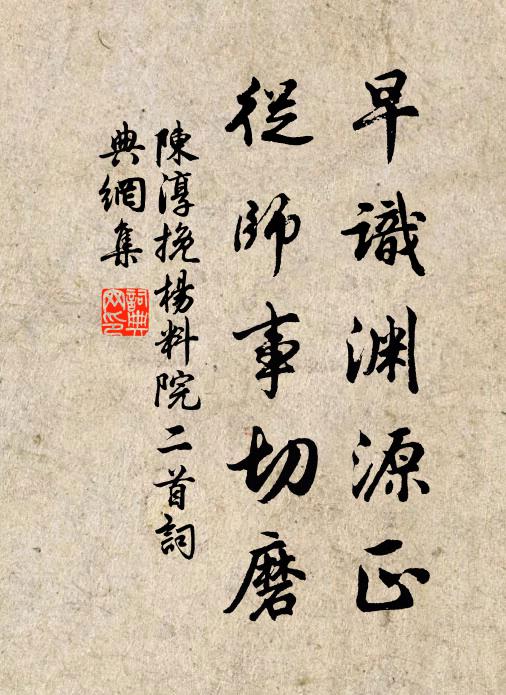 早識渊源正
從師事切磨
陳淳挽楊料院二首詞
典網集
詞典网印